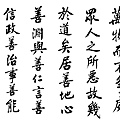 萬物而不爭處
眾人之所惡故幾
於道矣居善地心
善淵與善仁言善
信政善治事善能